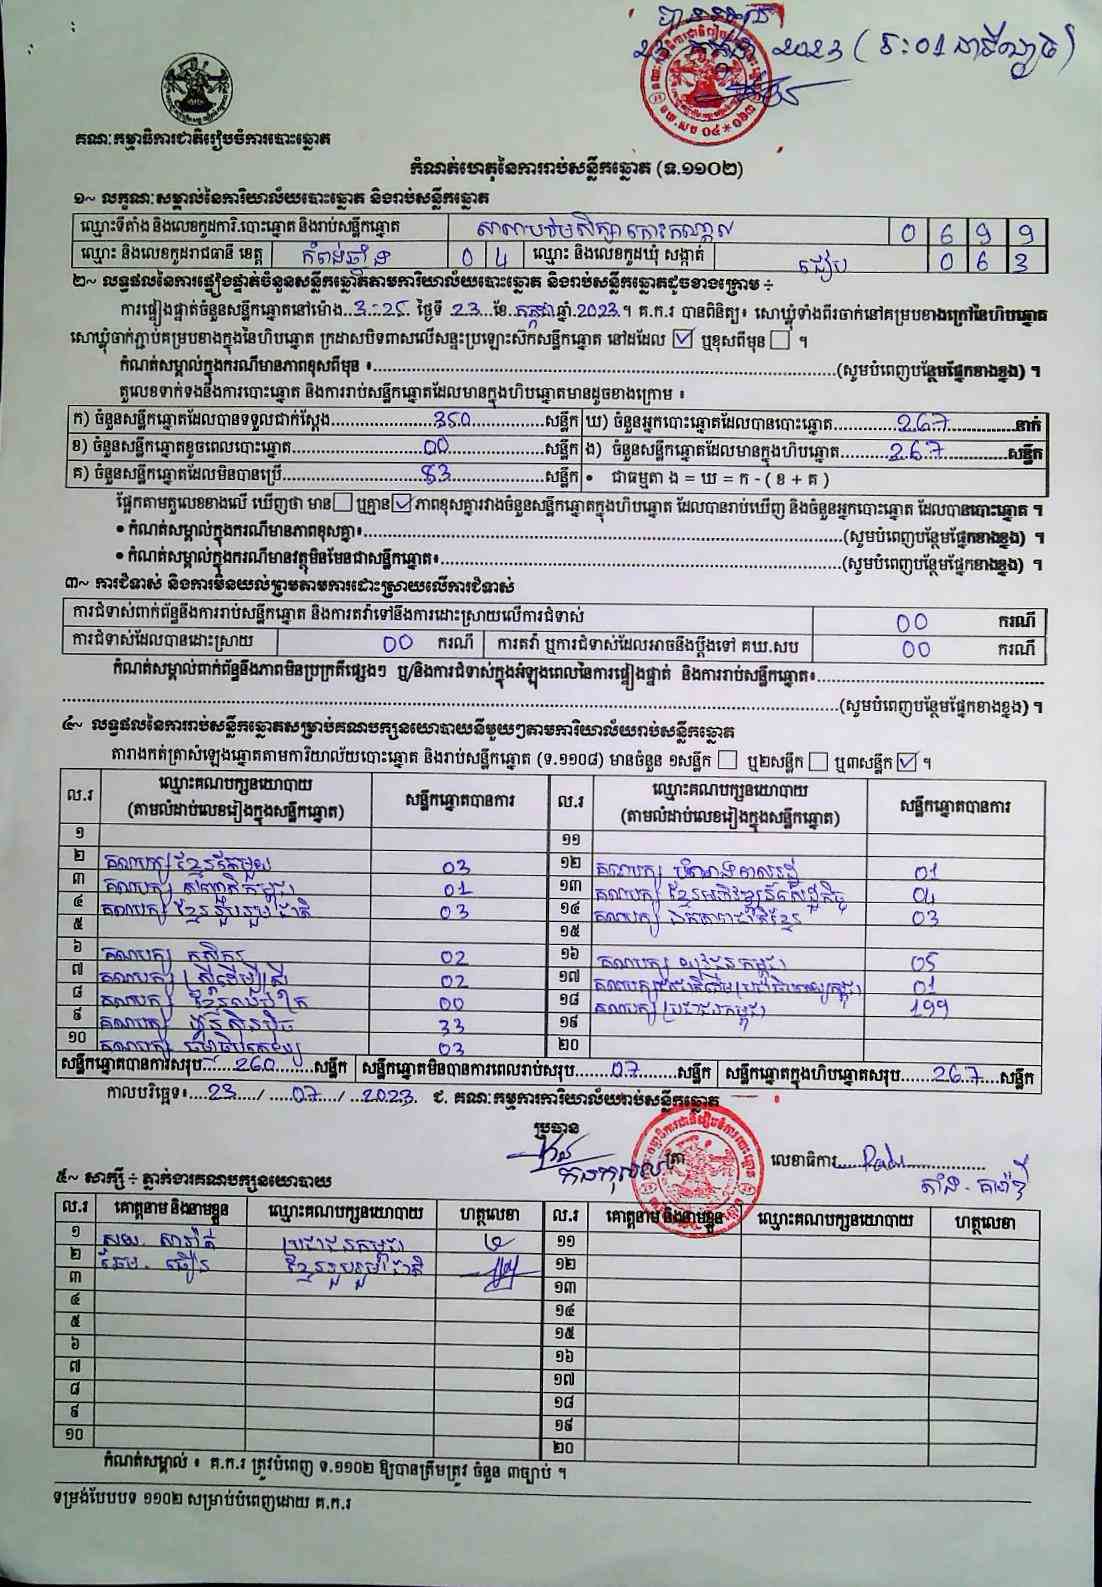 បានទទួល
23 កក្កដា 2023 ( ៥:01 នាទីល្ងាច )
គណៈកម្មាធិការជាតិរៀបចំការបោះឆ្នោត
កំណត់ហេតុនៃការរាប់សន្លឹកឆ្នោត (ទ.១១០២)
១~ លក្ខណៈសម្គាល់នៃការិយាល័យបោះឆ្នោត និងរាប់សន្លឹកឆ្នោត
ឈ្មោះទីតាំង និងលេខកូដការិ.បោះឆ្នោត និងរាប់សន្លឹកឆ្នោត សាលាបឋមសិក្សាកោះកណ្ដាល 0 6 9 9
ឈ្មោះ និងលេខកូដរាជធានី ខេត្ត កំពង់ឆ្នាំង 0 4 ឈ្មោះ និងលេខកូដឃុំ សង្កាត់ 0 6 3
២~ លទ្ធផលនៃការផ្ទៀងផ្ទាត់ចំនួនសន្លឹកឆ្នោតតាមការិយាល័យបោះឆ្នោត និងរាប់សន្លឹកឆ្នោតដូចខាងក្រោម ÷
ការផ្ទៀងផ្ទាត់ចំនួនសន្លឹកឆ្នោតនៅម៉ោង..3:25. ថ្ងៃទី 23...ខែ.កក្កដា.ឆ្នាំ.2023.។ គ.ក.រ បានពិនិត្យ៖ សោឃ្លុំទាំងពីរចាក់នៅគម្របខាងក្រៅនៃហិបឆ្នោត
សោឃ្លុំចាក់ភ្ជាប់គម្របខាងក្នុងនៃហិបឆ្នោត ក្រដាសបិទពាសលើសន្ទះប្រឡោះស៊កសន្លឹកឆ្នោត នៅដដែល ☑ ឬខុសពីមុន ☐ ។
កំណត់សម្គាល់ក្នុងករណីមានភាពខុសពីមុន ៖..........(សូមបំពេញបន្ថែមផ្នែកខាងខ្នង) ។
តួលេខទាក់ទងនឹងការបោះឆ្នោត និងការរាប់សន្លឹកឆ្នោតដែលមានក្នុងហិបឆ្នោតមានដូចខាងក្រោម ៖
ក) ចំនួនសន្លឹកឆ្នោតដែលបានទទួលជាក់ស្តែង..........350..........សន្លឹក ឃ) ចំនួនអ្នកបោះឆ្នោតដែលបានបោះឆ្នោត..........267..........នាក់
ខ) ចំនួនសន្លឹកឆ្នោតខូចពេលបោះឆ្នោត..........00..........សន្លឹក ង) ចំនួនសន្លឹកឆ្នោតដែលមានក្នុងហិបឆ្នោត..........267..........សន្លឹក
គ) ចំនួនសន្លឹកឆ្នោតដែលមិនបានប្រើ..........83..........សន្លឹក • ជាធម្មតា ង = ឃ = ក - ( ខ + គ )
ផ្អែកតាមតួលេខខាងលើ ឃើញថា មាន ☐ ឬគ្មាន ☑ ភាពខុសគ្នារវាងចំនួនសន្លឹកឆ្នោតក្នុងហិបឆ្នោត ដែលបានរាប់ឃើញ និងចំនួនអ្នកបោះឆ្នោត ដែលបានបោះឆ្នោត ។
• កំណត់សម្គាល់ក្នុងករណីមានភាពខុសគ្នា៖..........(សូមបំពេញបន្ថែមផ្នែកខាងខ្នង) ។
• កំណត់សម្គាល់ក្នុងករណីមានវត្ថុមិនមែនជាសន្លឹកឆ្នោត៖..........(សូមបំពេញបន្ថែមផ្នែកខាងខ្នង) ។
៣~ ការជំទាស់ និងការមិនយល់ព្រមតាមការដោះស្រាយលើការជំទាស់
ការជំទាស់ពាក់ព័ន្ធនឹងការរាប់សន្លឹកឆ្នោត និងការតវ៉ាទៅនឹងការដោះស្រាយលើការជំទាស់ 00 ករណី
ការជំទាស់ដែលបានដោះស្រាយ 00 ករណី ការតវ៉ា ឬការជំទាស់ដែលអាចនឹងប្តឹងទៅ គឃ.សប 00 ករណី
កំណត់សម្គាល់ពាក់ព័ន្ធនឹងភាពមិនប្រក្រតីផ្សេងៗ ឬ/និងការជំទាស់ក្នុងអំឡុងពេលនៃការផ្ទៀងផ្ទាត់ និងការរាប់សន្លឹកឆ្នោត៖..........
..........(សូមបំពេញបន្ថែមផ្នែកខាងខ្នង) ។
៤~ លទ្ធផលនៃការរាប់សន្លឹកឆ្នោតសម្រាប់គណបក្សនយោបាយនីមួយៗតាមការិយាល័យរាប់សន្លឹកឆ្នោត
តារាងកត់ត្រាសំឡេងឆ្នោតតាមការិយាល័យបោះឆ្នោត និងរាប់សន្លឹកឆ្នោត (ទ.១១០៨) មានចំនួន ១សន្លឹក ☐ ឬ២សន្លឹក ☐ ឬ៣សន្លឹក ☑ ។
ល.រ ឈ្មោះគណបក្សនយោបាយ (តាមលំដាប់លេខរៀងក្នុងសន្លឹកឆ្នោត) សន្លឹកឆ្នោតបានការ ល.រ ឈ្មោះគណបក្សនយោបាយ (តាមលំដាប់លេខរៀងក្នុងសន្លឹកឆ្នោត) សន្លឹកឆ្នោតបានការ
១ ១១
២ គណបក្ស ខ្មែរតែមួយ 03 ១២ គណបក្ស 01
៣ គណបក្ស សញ្ជាតិកម្ពុជា 01 ១៣ គណបក្ស ខ្មែរអភិវឌ្ឍន៍សេដ្ឋកិច្ច 04
៤ គណបក្ស ខ្មែររួបរួមជាតិ 03 ១៤ គណបក្ស ឯកភាពជាតិខ្មែរ 03
៥ ១៥
៦ គណបក្ស កសិករ 02 ១៦ គណបក្ស យុវជនកម្ពុជា 05
៧ គណបក្ស ស្រ្តីដើម្បីស្រ្តី 02 ១៧ គណបក្ស 01
៨ គណបក្ស ខ្មែរឈប់ក្រ 00 ១៨ គណបក្ស ប្រជាជនកម្ពុជា 199
៩ គណបក្ស ហ្វ៊ុនស៊ិនប៉ិច 33 ១៩
១០ គណបក្ស ធម្មាធិបតេយ្យ 03 ២០
សន្លឹកឆ្នោតបានការសរុប......260......សន្លឹក សន្លឹកឆ្នោតមិនបានការពេលរាប់សរុប......07......សន្លឹក សន្លឹកឆ្នោតក្នុងហិបឆ្នោតសរុប......267....សន្លឹក
កាលបរិច្ឆេទ៖...23..../....07..../...2023. ជ. គណៈកម្មការការិយាល័យរាប់សន្លឹកឆ្នោត
ប្រធាន ត្រា លេខាធិការ
៥~ សាក្សី ÷ ភ្នាក់ងារគណបក្សនយោបាយ
ល.រ គោត្តនាម និងនាមខ្លួន ឈ្មោះគណបក្សនយោបាយ ហត្ថលេខា ល.រ គោត្តនាម និងនាមខ្លួន ឈ្មោះគណបក្សនយោបាយ ហត្ថលេខា
១ ប្រជាជនកម្ពុជា ១១
២ ខ្មែររួបរួមជាតិ ១២
៣ ១៣
៤ ១៤
៥ ១៥
៦ ១៦
៧ ១៧
៨ ១៨
៩ ១៩
១០ ២០
កំណត់សម្គាល់ ៖ គ.ក.រ ត្រូវបំពេញ ទ.១១០២ ឱ្យបានត្រឹមត្រូវ ចំនួន ៣ច្បាប់ ។
ទម្រង់បែបបទ ១១០២ សម្រាប់បំពេញដោយ គ.ក.រ